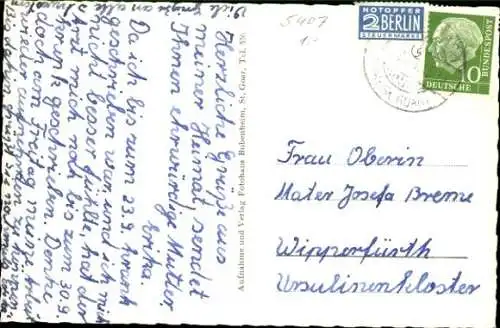 Herzliche Grüße aus
meiner Heimat sendet
Ihnen ehrwürdige Mutter
Erika.
Da ich bis zum 23.9. krank
geschrieben war und ich mich
nicht besser fühle, hat der
Arzt mich noch bis zum 30.9.
krank geschrieben. Denke
doch am Freitag meine Arbeit
wieder aufnehmen zu können.
Bis dahin grüßt sie nochmals Erika
Viele Grüße an alle
Aufnahme und Verlag Fotohaus Bubenheim, St. Goar, Tel.
5407
1.-
NOTOPFER
2 BERLIN
STEUERMARKE
DEUTSCHE
BUNDESPOST
10
Frau Oberin
Mater Josefa Breme
Wipperfürth
Ursulinenkloster